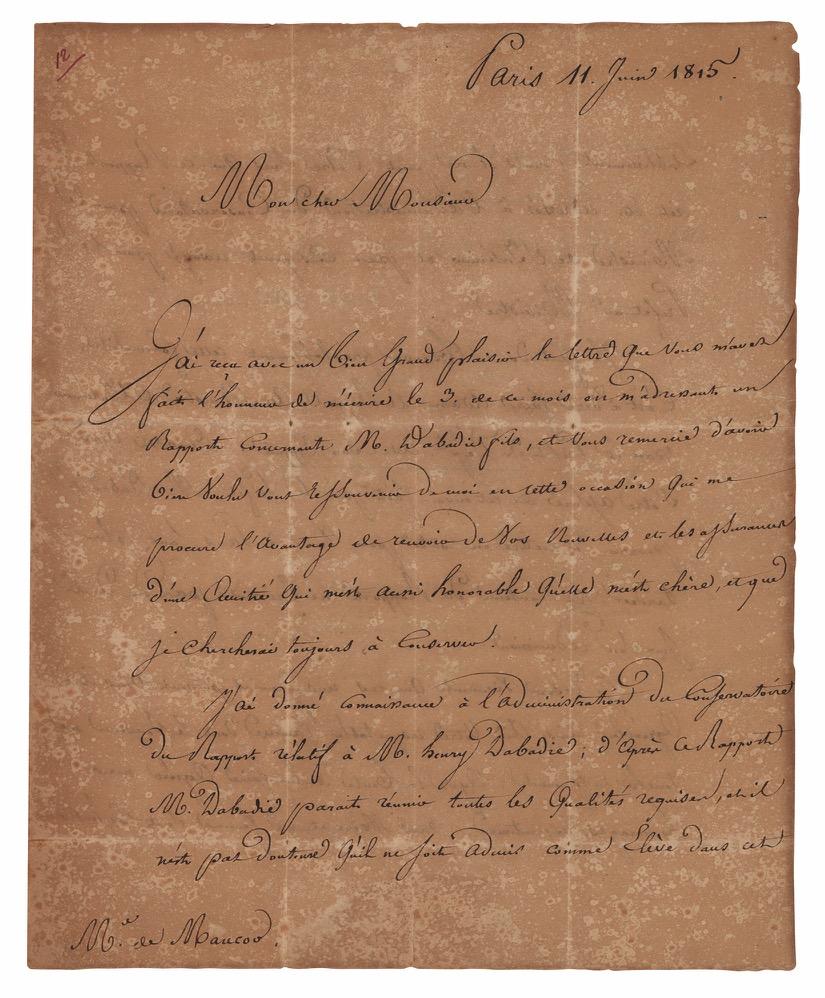 12
Paris 11. Juin 1815.
Mon cher Monsieur
J'ai reçu avec un bien Grand plaisir la lettre que vous m'avez
fait l'honneur de m'écrire le 3. de ce mois en m'adressant un
Rapport Concernant M. Dabadie fils, et vous remercie d'avoir
bien Voulu vous ressouvenir de moi en cette occasion qui me
procure l'avantage de recevoir de Vos Nouvelles et les assurances
d'une Amitié qui m'est aussi honorable qu'elle m'est chère, et que
je chercherai toujours à Conserver.
J'ai donné connaissance à l'Administration du Conservatoire
du Rapport rélatif à M. henry Dabadie; d'après ce Rapport
M. Dabadie parait réunir toutes les Qualités requises, et il
n'est pas douteux qu'il ne soit admis comme Elève dans cet
M.r de Maucor.